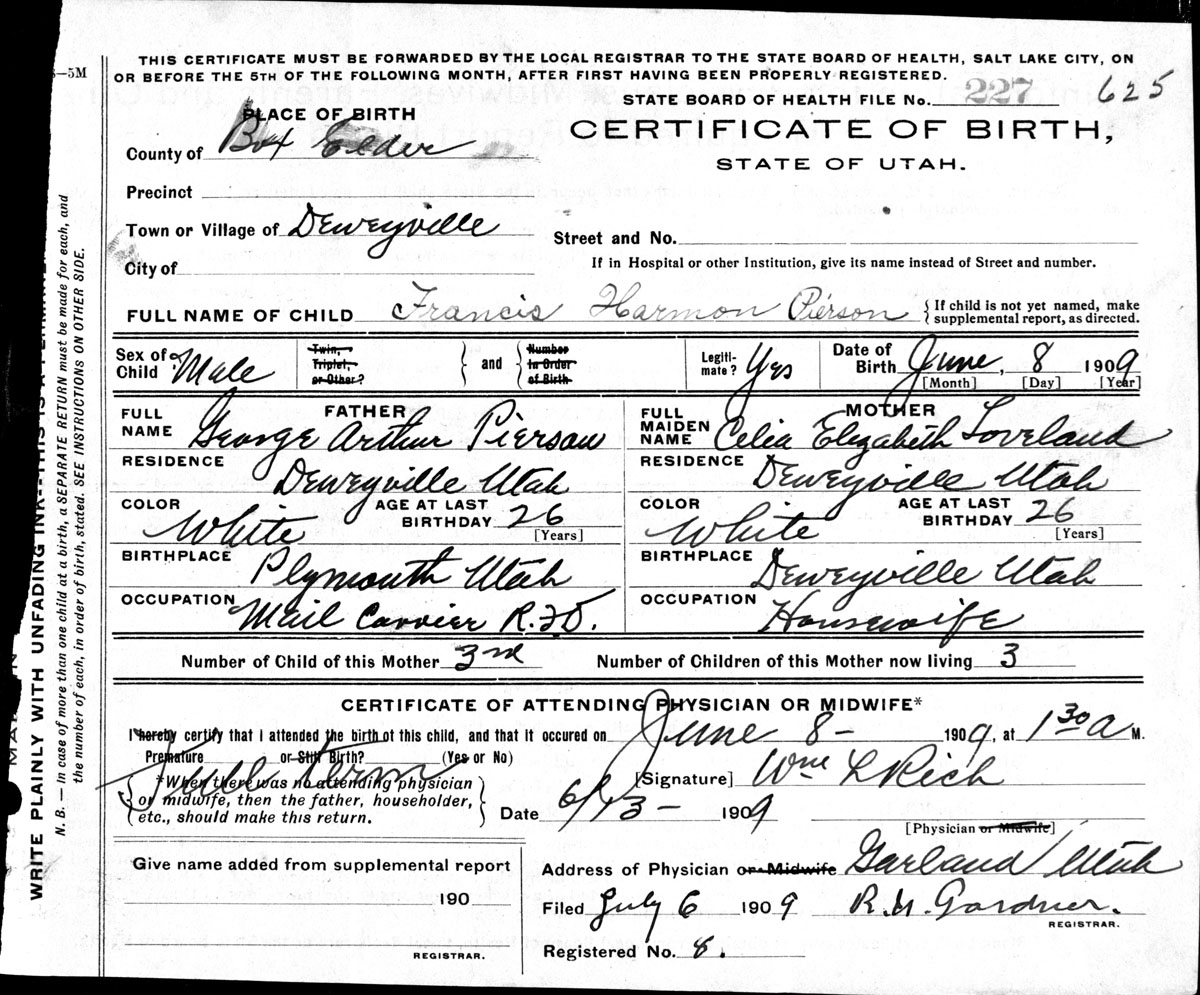 THIS CERTIFICATE MUST BE FORWARDED BY THE LOCAL REGISTRAR TO THE STATE BOARD OF HEALTH, SALT LAKE CITY, ON
OR BEFORE THE 5TH OF THE FOLLOWING MONTH, AFTER FIRST HAVING BEEN PROPERLY REGISTERED.
—5M
STATE BOARD OF HEALTH FILE No. 227 625
PLACE OF BIRTH
CERTIFICATE OF BIRTH,
STATE OF UTAH.
County of Box Elder
Precinct
Town or Village of Deweyville
Street and No.
City of
If in Hospital or other Institution, give its name instead of Street and number.
FULL NAME OF CHILD Francis Harmon Pierson { If child is not yet named, make
supplemental report, as directed.
Sex of Child Male
Twin, Triplet, or Other? } and { Number in Order of Birth
Legiti-mate? Yes
Date of Birth June, 8 1909
[Month] [Day] [Year]
FATHER
FULL NAME George Arthur Pierson
RESIDENCE
Deweyville Utah
COLOR White
AGE AT LAST BIRTHDAY 26
[Years]
BIRTHPLACE Plymouth Utah
OCCUPATION Mail Carrier R.F.D.
MOTHER
FULL MAIDEN NAME Celia Elizabeth Loveland
RESIDENCE
Deweyville Utah
COLOR White
AGE AT LAST BIRTHDAY 26
[Years]
BIRTHPLACE Deweyville Utah
OCCUPATION Housewife
Number of Child of this Mother 3rd
Number of Children of this Mother now living 3
CERTIFICATE OF ATTENDING PHYSICIAN OR MIDWIFE*
I hereby certify that I attended the birth of this child, and that it occured on June 8 - 1909, at 1 30 a M.
Premature or Still Birth? (Yes or No)
Full term
*When there was no attending physician
or midwife, then the father, householder,
etc., should make this return.
[Signature] Wm L Rich
Date 6/13 - 1909
[Physician or Midwife]
Give name added from supplemental report
190
REGISTRAR.
Address of Physician or Midwife Garland Utah
Filed July 6 1909 R. H. Gardner.
REGISTRAR.
Registered No. 8.
WRITE PLAINLY WITH UNFADING INK—THIS IS A
N. B. — In case of more than one child at a birth, a SEPARATE RETURN must be made for each, and
the number of each, in order of birth, stated. SEE INSTRUCTIONS ON OTHER SIDE.